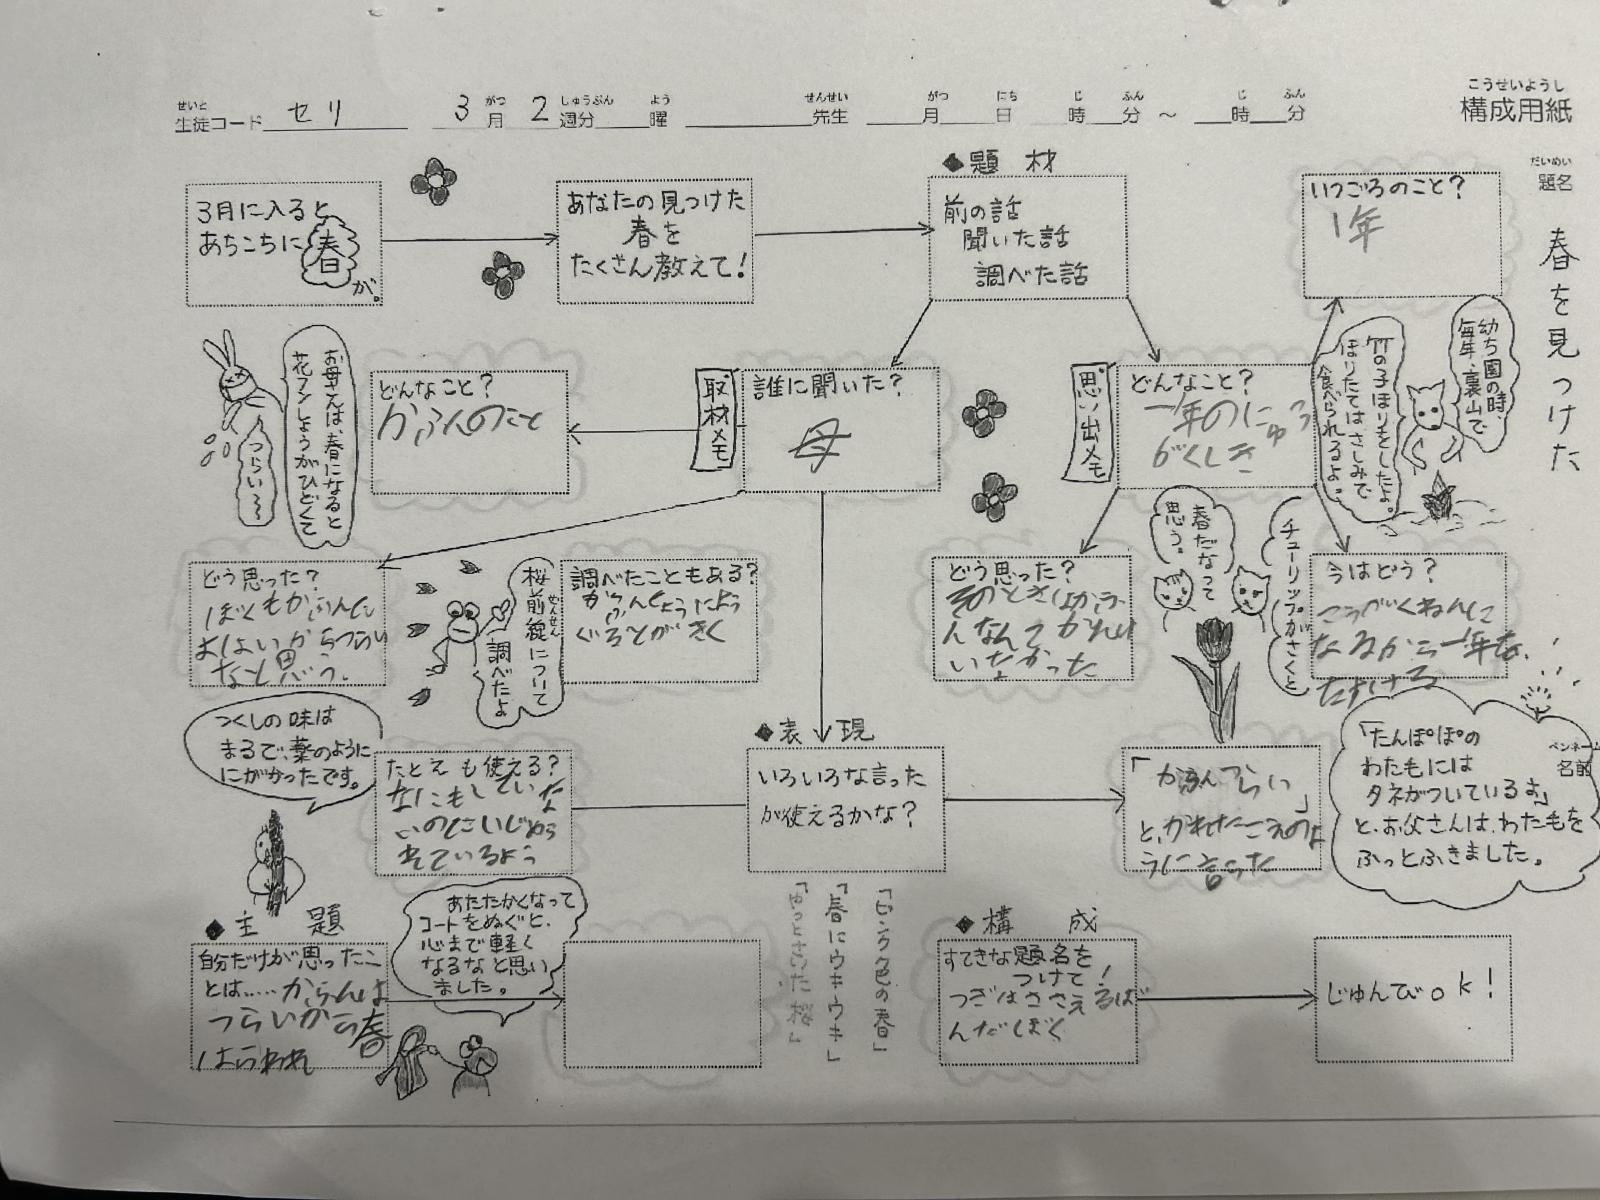 こうせいようし
構成用紙
せいと
生徒コード セリ
がつ しゅうぶん よう
3月 2週分 曜
せんせい
先生
がつ にち じ ふん じ ふん
月 日 時 分 ～ 時 分
だいめい
題名
春を見つけた
3月に入ると
あちこちに春
が。
あなたの見つけた
春を
たくさん教えて!
◆題 材
前の話
聞いた話
調べた話
いつごろのこと?
1年
幼ち園の時、
毎年、裏山で
竹の子ほりをしたよ。
ほりたてはさしみで
食べられるよ。
思い出メモ
どんなこと?
一年のにゅう
がくしき
取材メモ
誰に聞いた?
母
どんなこと?
かふんのこと
お母さんは、春になると
花フンしょうがひどくて
つらい〜
どう思った?
ぼくもかふんに
よわいからつらい
なと思う。
桜前線について
ぜんせん
調べたよ
調べたこともある?
かふんしょうによう
ぐるとがきく
どう思った?
そのときはかふ
んなんてかれい
いなかった
春だなって
思う。
チューリップがさくと
今はどう?
こうがくねんに
なるから一年を、
たすける
つくしの味は
まるで、薬のように
にがかったです。
たとえも使える?
なにもしていな
いのにいじめら
れているよう
◆表 現
いろいろな言った
が使えるかな?
「かふんつらい
」
と、かれたこえのよ
うに言った
「たんぽぽの
わた毛には
タネがついているよ」
と、お父さんは、わた毛を
ふっとふきました。
ペンネーム
名前
◆主 題
自分だけが思ったこ
とは……かふんは
つらいから春
はらわれ
あたたかくなって
コートをぬぐと、
心まで軽く
なるなと思い
ました。
「ピンク色の春」
「春にウキウキ」
◆構 成
すてきな題名を
つけて!
つぎはささえるば
んだぼく
じゅんびok!